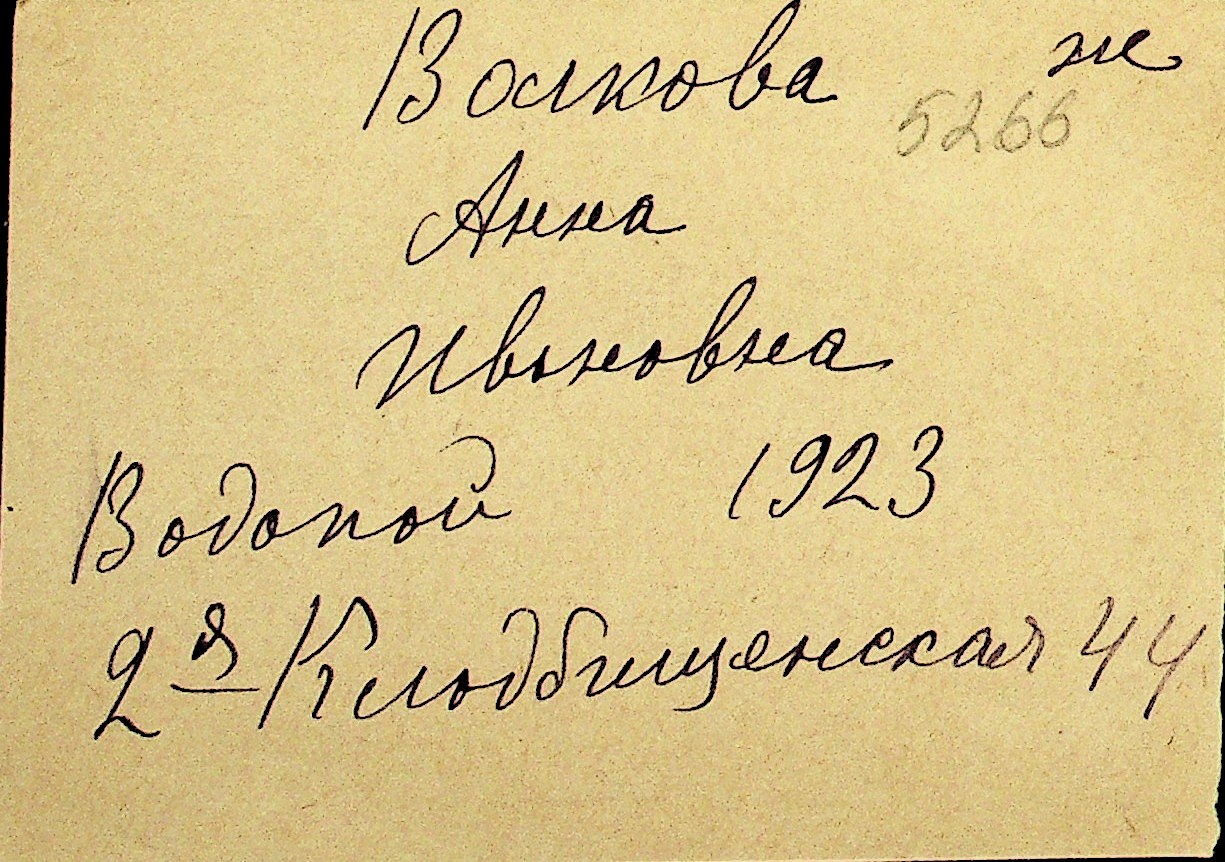 Волкова же
5266
Анна
Ивановна
Водопой 1923
2я Кладбищенская 44